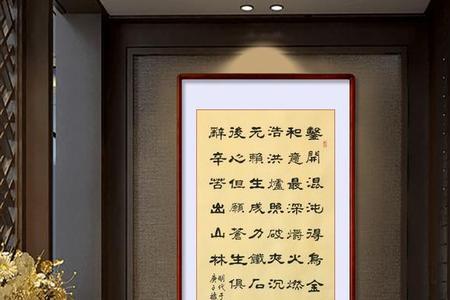 鑿開混沌得烏金
和意最深爝火燃
浩洪爐照破夜沉
元賴生成力鐵石
後心但願蒼生俱
辭辛苦出山林
明代于
庚子